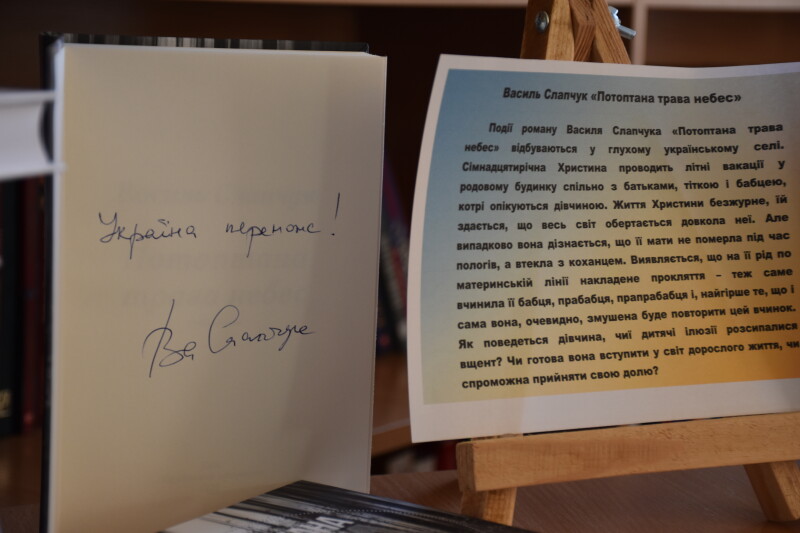 Україна переможе!
Ва Слапчук
Василь Слапчук «Потоптана трава небес»
Події роману Василя Слапчука «Потоптана трава
небес» відбуваються у глухому українському селі.
Сімнадцятирічна Христина проводить літні вакації у
родовому будинку спільно з батьками, тіткою і бабцею,
котрі опікуються дівчиною. Життя Христини безжурне, їй
здається, що весь світ обертається довкола неї. Але
випадково вона дізнається, що її мати не померла під час
пологів, а втекла з коханцем. Виявляється, що на її рід по
материнській лінії накладене прокляття – теж саме
вчинила її бабця, прабабця, прапрабабця і, найгірше те, що і
сама вона, очевидно, змушена буде повторити цей вчинок.
Як поведеться дівчина, чиї дитячі ілюзії розсипалися
вщент? Чи готова вона вступити у світ дорослого життя, чи
спроможна прийняти свою долю?